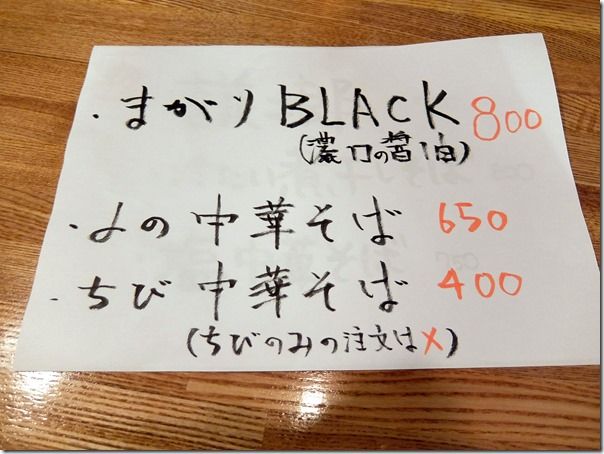 ・まがりBLACK 800
(濃口の醤油)
・よの中華そば 650
・ちび中華そば 400
(ちびのみの注文は×)